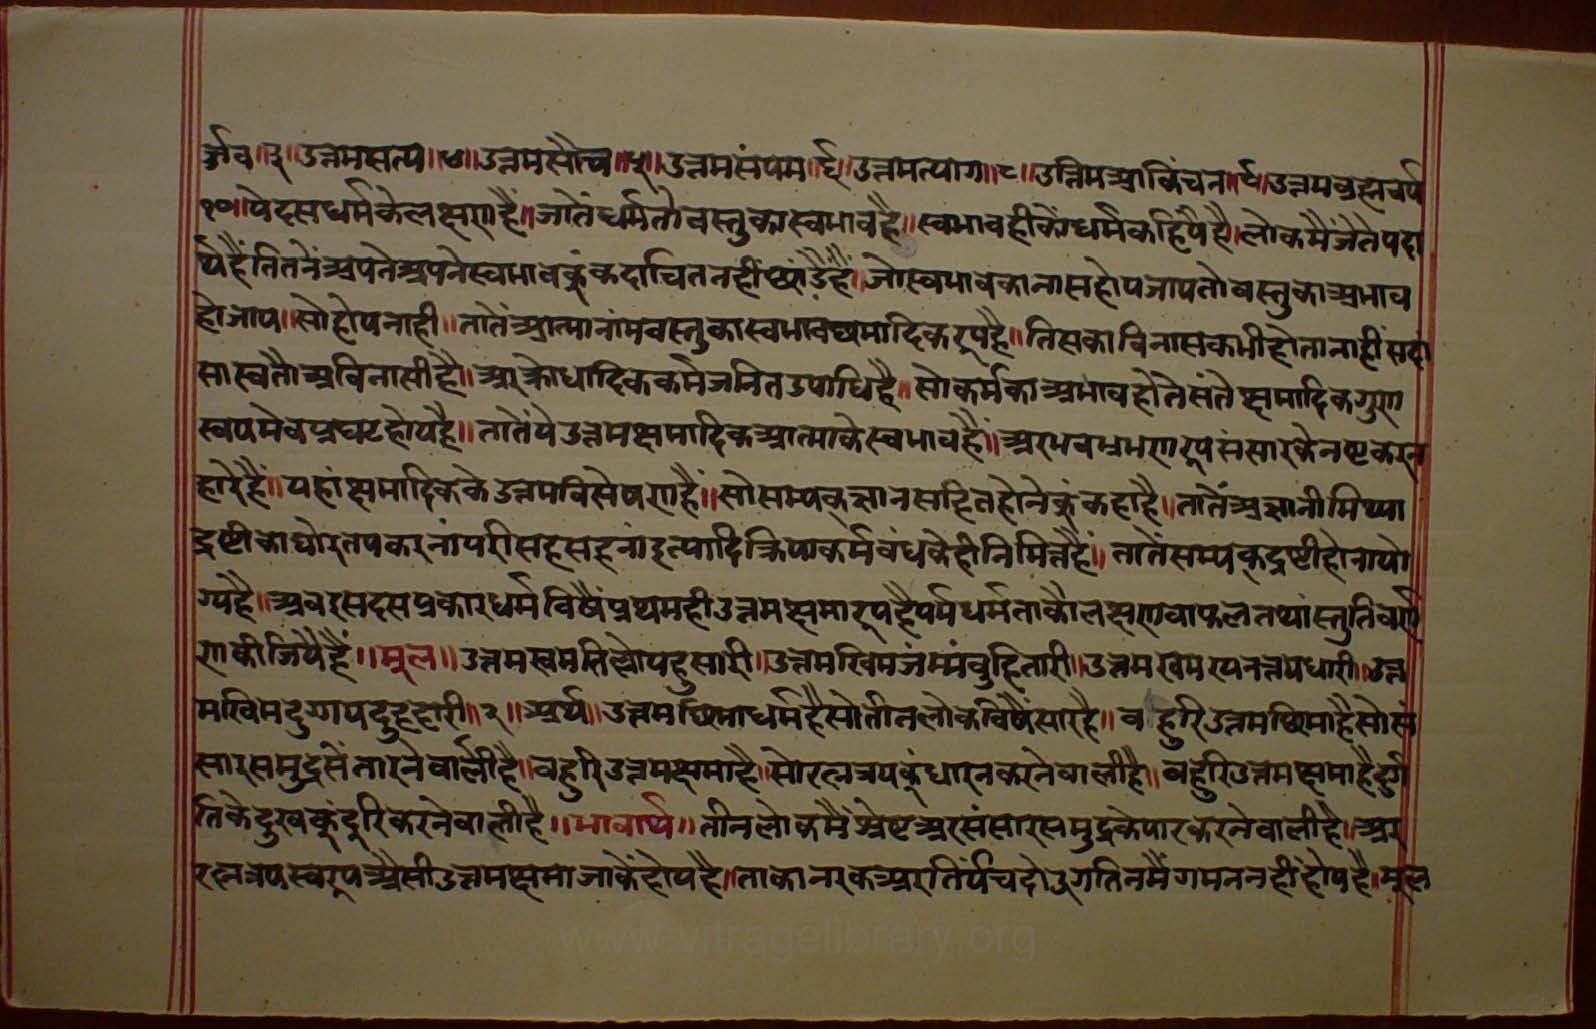 र्ज्जव॥३॥उत्तमसत्य॥४॥उत्तमसौच॥५॥उत्तमसंयम॥६॥उत्तमत्याग॥८॥उत्तिमआकिंचन॥९॥उत्तमब्रह्मचर्य
१०॥येदसधर्मकेलक्षणहैं॥जातेंधर्मतौवस्तुकास्वभावहै॥स्वभावहीकौंधर्मकहियैहै।लोकमैंजैतेपदा
र्थहैंतितनेंअपनेअपनेस्वभावकूंकदाचितनहींछांडैहैं॥जोस्वभावकानासहोयजायतोवस्तुकाअभाव
होजाय॥सोहोयनाही॥तातेंआत्मानांमवस्तुकास्वभावछमादिकरूपहै॥तिसकाविनासकभीहोतानाहींसदां
सास्वतौअविनासीहै॥अरक्रोधादिककर्मजनितउपाधिहै॥सोकर्मकाअभावहोतेसंतेक्षमादिकगुण
स्वयमेवप्रघटहोयहै॥तातेंयेउत्तमक्षमादिकआत्माकेस्वभावहैं॥अरभवभ्रमणरूपसंसारकेनष्टकरन
हारेहैं॥यहांक्षमादिककेउत्तमविसेषणहै॥सोसम्यक्ज्ञानसहितहोनेकूंकहाहै॥तातेंअज्ञानीमिथ्या
द्रष्टीकाघोरतपकरनांपरीसहसहनांइत्यादिक्रियाकर्मबंधकेहीनिमित्तहैं॥तातेंसम्यक्द्रष्टीहोनायो
ग्यहै॥अबइसदसप्रकारधर्मविषैंप्रथमहीउत्तमक्षमारूपहैधर्मताकौलक्षणवाफलतथांस्तुतिवर्ण
णकीजियैहैं॥मूल॥उत्तमखमतिल्लोयहुसारी॥उत्तमखिमजंम्मंबुहितारी॥उत्तमखमरयनत्तयधारी॥उत्त
मखिमदुग्गयदुहहारी॥२॥अर्थ॥उत्तमछिमाधर्महैसोतीनलोकविषैंसारहै॥वहुरिउत्तमछिमाहैसोसं
सारसमुद्रसेंतारनेवालीहै॥वहुरिउत्तमक्षमाहै॥सोरत्नत्रयकूंधारनकरनेवालीहै॥वहुरिउत्तमक्षमाहैदुर्ग
तिकेदुखकूंदूरिकरनेवालीहै॥भावार्थ॥तीनलोकमैंश्रेष्टअरसंसारसमुद्रकेपारकरनेवालीहै॥अर
रत्नत्रयस्वरूपअैसीउत्तमक्षमाजाकेंहोयहै॥ताकानरकअरतिर्यंचदोउगतिनमैंगमननहींहोयहै॥मूल
www.vitragelibrary.org